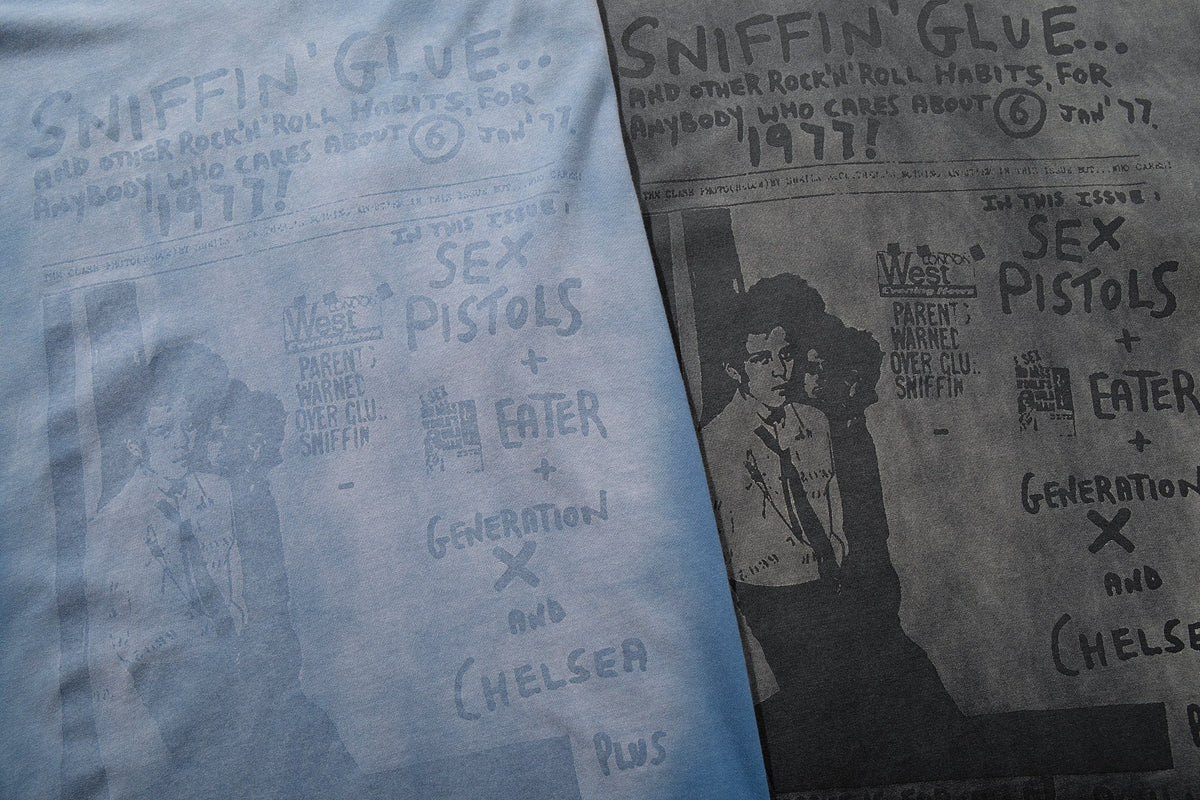 SNIFFIN' GLUE...
AND OTHER ROCK'N'ROLL HABITS, FOR
ANYBODY WHO CARES ABOUT 6 JAN'77.
1977!
THE CLASH PHOTO(BELOW)BY
IN THIS ISSUE:
SEX
PISTOLS
+
EATER
+
GENERATION
X
AND
CHELSEA
PLUS
LONDON
West
Evening News
PARENT;
WARNED
OVER GLU..
SNIFFIN
-
SNIFFIN' GLUE...
AND OTHER ROCK'N'ROLL HABITS, FOR
ANYBODY WHO CARES ABOUT 6 JAN'77.
1977!
THE CLASH PHOTO(BELOW)BY IN THIS ISSUE BUT...WHO CARES!
IN THIS ISSUE:
SEX
PISTOLS
+
EATER
+
GENERATION
X
AND
CHELSEA
LONDON
West
Evening News
PARENT;
WARNED
OVER GLU..
SNIFFIN
-